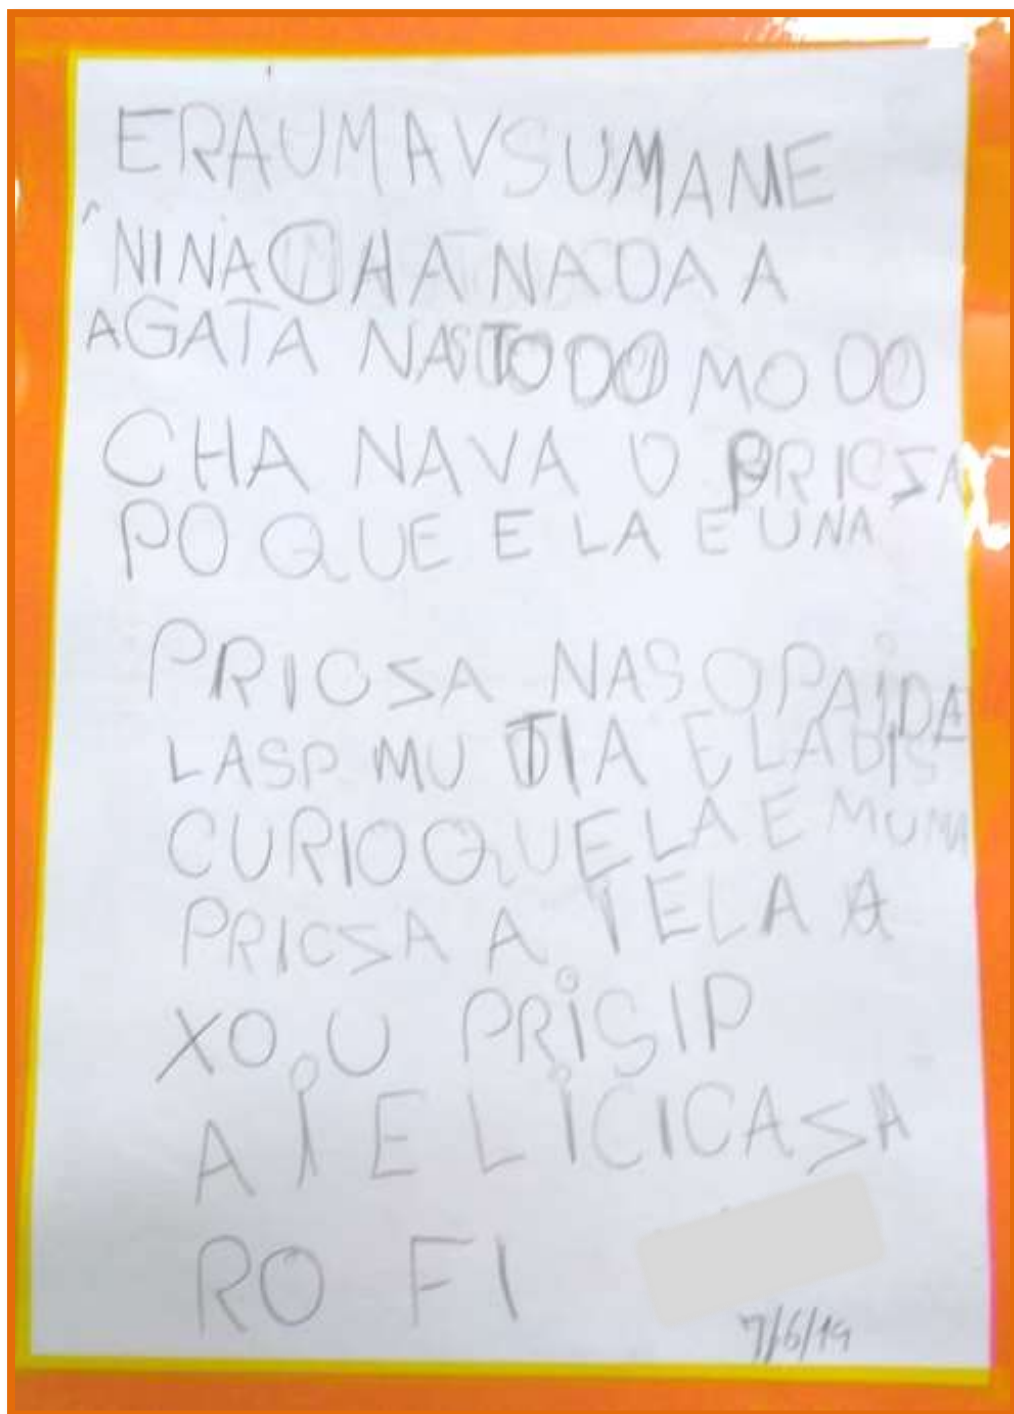 ERAUMAVSUMAME
NINA CHANADA A
AGATA NASTODO MODO
CHA NAVA O PRICSA
PO QUE E LA E UNA
PRICSA NAS O PAI DE
LASP MU DIA ELA DIS
CURIO QUE LA E MUMA
PRICSA A I ELA A
XO U PRISIP
A I E L ICICASA
RO FI
7/6/19